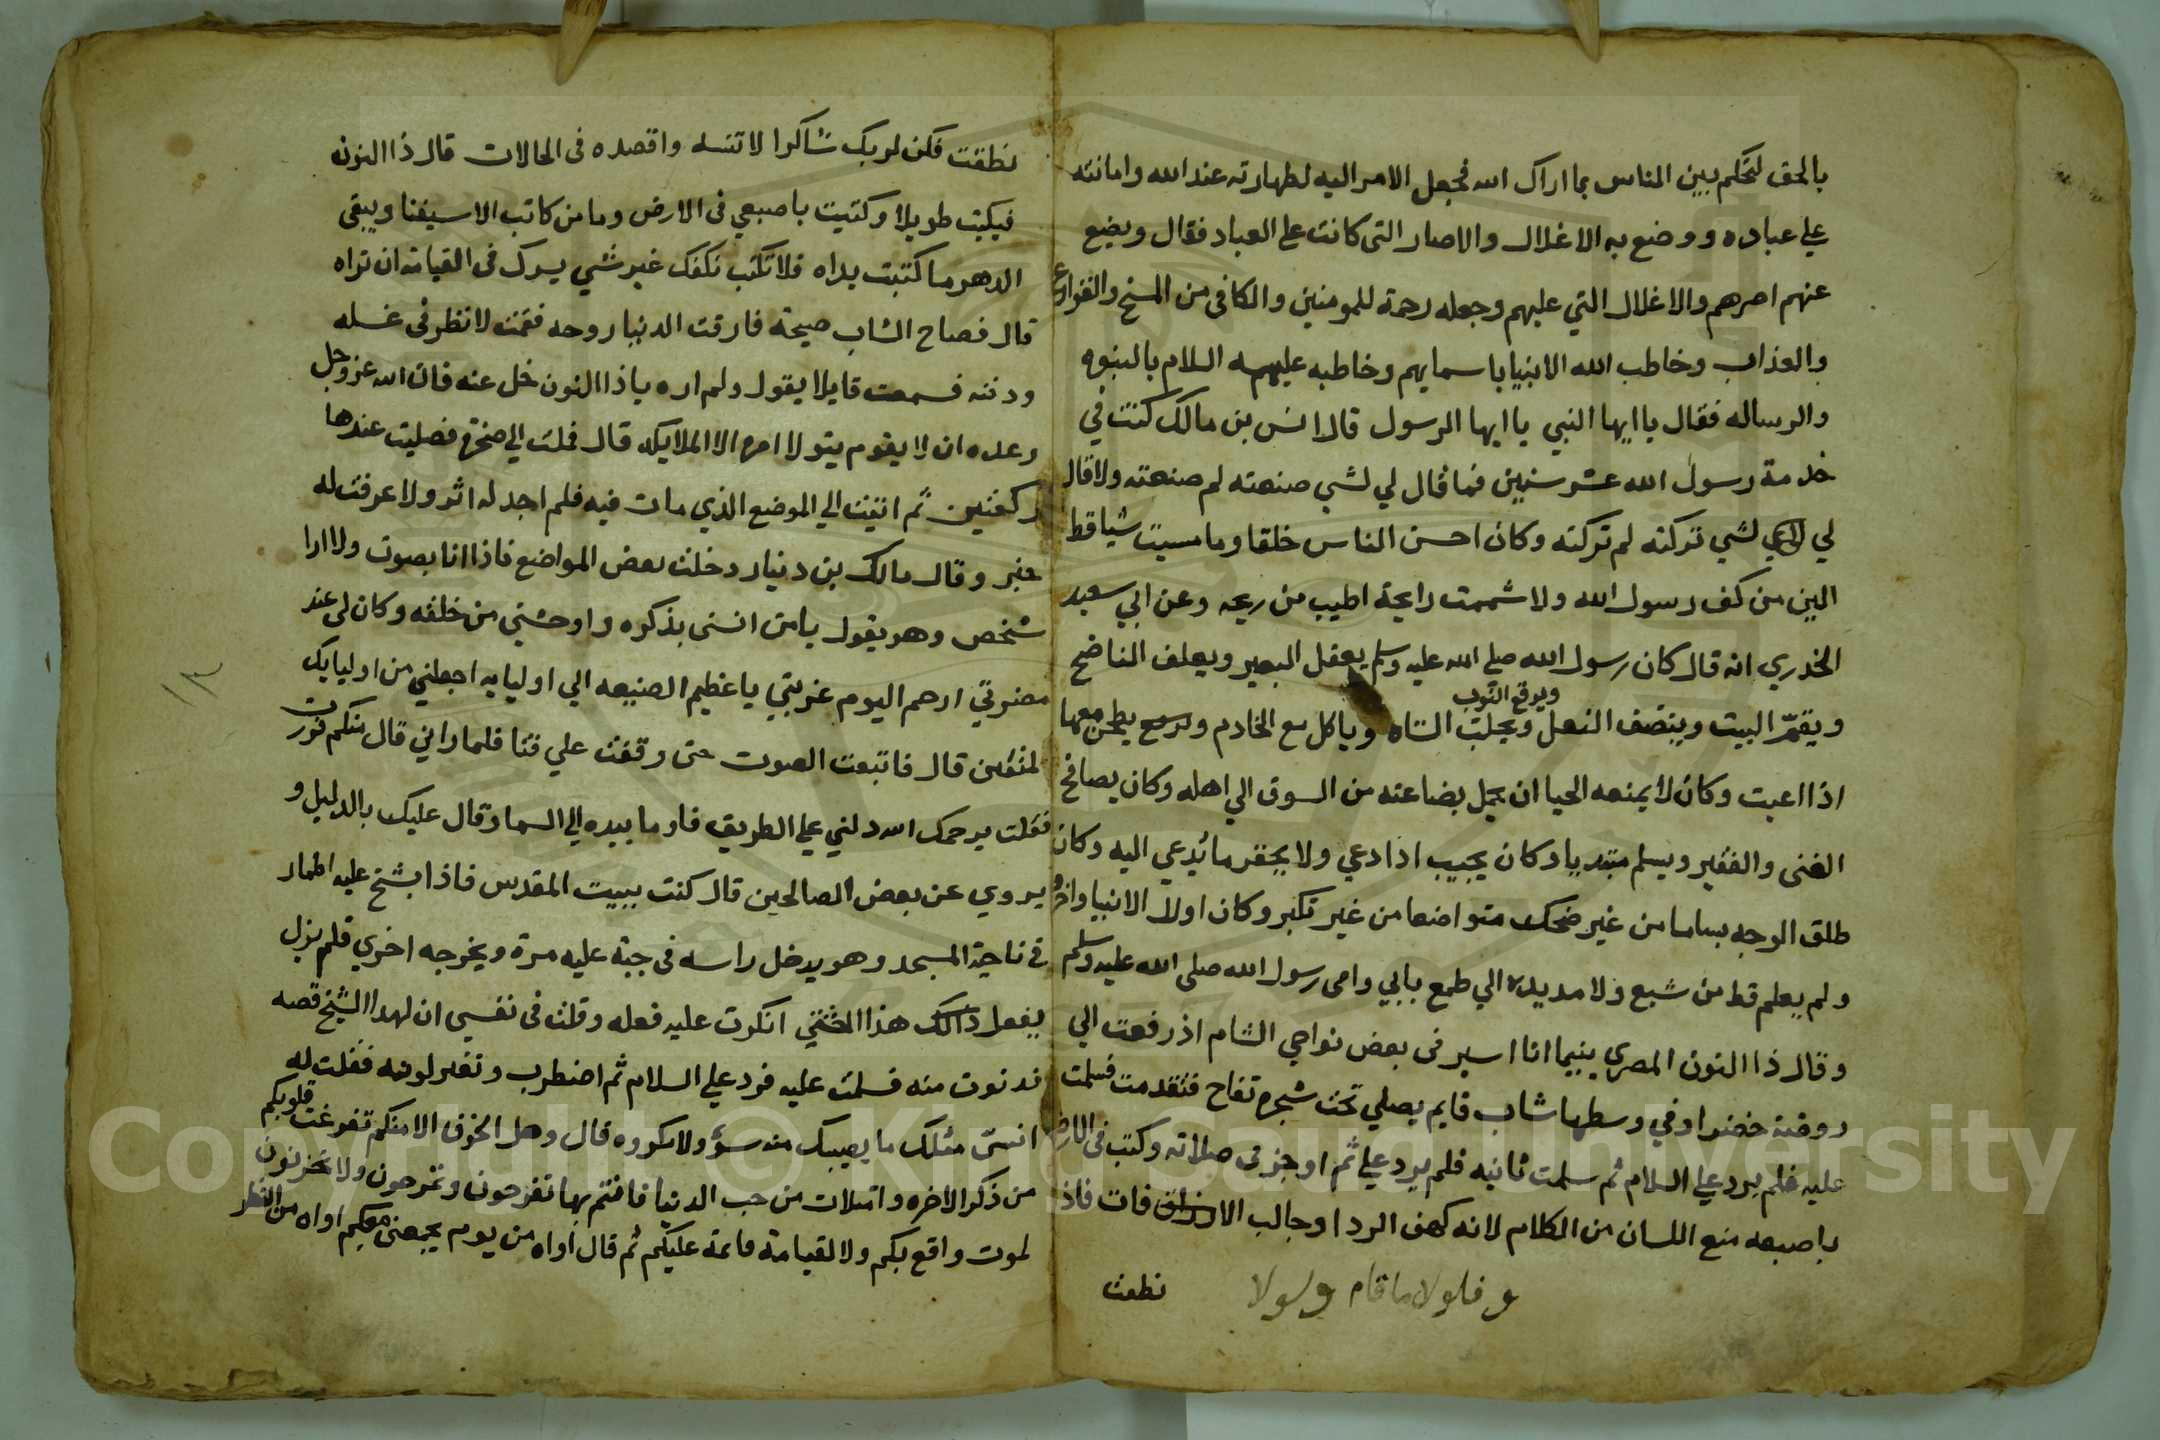 بالحق لتحكم بين الناس بما اراك الله فجعل الامر اليه لطهارته عند الله وامانته
علي عباده ووضع به الاغلال والاصار التى كانت على العباد فقال ويضع
عنهم اصرهم والاغلال التي عليهم وجعله رحمة للمومنين والكافى من المسخ والقواع
والعذاب وخاطب الله الانبيا باسمايهم وخاطبه عليهم السلام بالنبوه
والرساله فقال ياايها النبي يا ايها الرسول قال انس بن مالك كنت في
خدمة رسول الله عشر سنين فما قال لي لشي صنعته لم صنعته ولا قال
لي لشي تركته لم تركته وكان احسن الناس خلقا وما مسيت شيا قط
الين من كف رسول الله ولا شممت رايحة اطيب من ريحه وعن ابي سعيد
الخدري انه قال كان رسول الله صلي الله عليه وسلم يعقل البعير ويعلف الناضح
ويرقع الثوب
ويقمّ البيت وينصف النعل ويحلب الشاه وياكل مع الخادم يطحن معها
اذا اعيت وكان لا يمنعه الحيا ان يحمل بضاعته من السوق الي اهله وكان يصافح
الغنى والفقير ويسلم مبتديا وكان يجيب اذا دعي ولا يحقر ما يُدعي اليه وكان
طلق الوجه بساما من غير ضحك متواضعا من غير تكبر وكان اولا الانبيا واخر
ولم يعلم قط من شبع ولا مد يده الي طمع بابي وامى رسول الله صلى الله عليه وسلم
وقال ذا النون المصري بنيما انا اسير فى بعض نواحي الشام اذ رفعت الي
روضة خضرا وفي وسطها شاب قايم يصلي تحت شجره تفاح فتقدمت فسلمت
عليه فلم يرد علي السلام ثم سلمت ثانيه فلم يرد علي ثم اوجز فى صلاته وكتب فى الارض
باصبعه منع اللسان من الكلام لانه كهف الردا وجالب الافات فاذ
نطقت
و فلولا ما قام ولولا
نطقت فكن لربك شاكرا لا تنسه واقصده فى الحالات قال ذا النون
فبكيت طويلا وكتبت باصبعي فى الارض وما من كاتب الا سيفنا ويبقى
الدهر ما كتبت يداه فلا تكتب بكفك غير شي يسرك فى القيامة ان تراه
قال فصاح الشاب صيحة فارقت الدنيا روحه فقمت لانظر فى غسله
ودفنه فسمعت قايلا يقول ولم اره ياذا النون خل عنه فان الله عز وجل
وعده ان لا يقوم يتولا امره الا الملايكه قال فملت الي صخرة فصليت عندها
ركعتين ثم اتيت الي الموضع الذي مات فيه فلم اجد له اثر ولا عرفت له
خبر وقال مالك بن دنيار دخلت بعض المواضع فاذا انا بصوت ولا ارا
شخص وهو يقول يامن انسنى بذكره واوحشني من خلقه وكان لى عند
مضرتي ارحم اليوم غربتي يا عظيم الصنيعه الي اوليايه اجعلني من اوليايك
المتقين قال فاتبعت الصوت حتى وقفت علي فتا فلما رانى قال منكم فررت
فقلت يرحمك الله دلني علي الطريق فاوما بيده الي السما وقال عليك بالدليل و
يروي عن بعض الصالحين قال كنت ببيت المقدس فاذا بشخ عليه اطمار
فى ناحية المسجد وهو يدخل راسه فى جبة عليه مرة ويخرجه اخري فلم يزل
يفعل ذالك هذا انكرت عليه فعله وقلت فى نفسي ان لهدا الشيخ قصه
فدنوت منه فسلمت عليه فرد علي السلام ثم اضطرب وتغير لونه فقلت له
انسيّ مثلك ما يصيبك منه سوٌ ولا مكروه قال وهل الخوف الا منكم تفرغت قلوبكم
من ذكر الاخره وامتلات من حب الدنيا فانتم بها تفرحون وتمرحون ولا تحزنون
لموت واقع بكم ولا لقيامة قايمة عليكم ثم قال اواه من يوم يجمعنى معكم اواه من النظر
١٣
Copyright © King Saud University